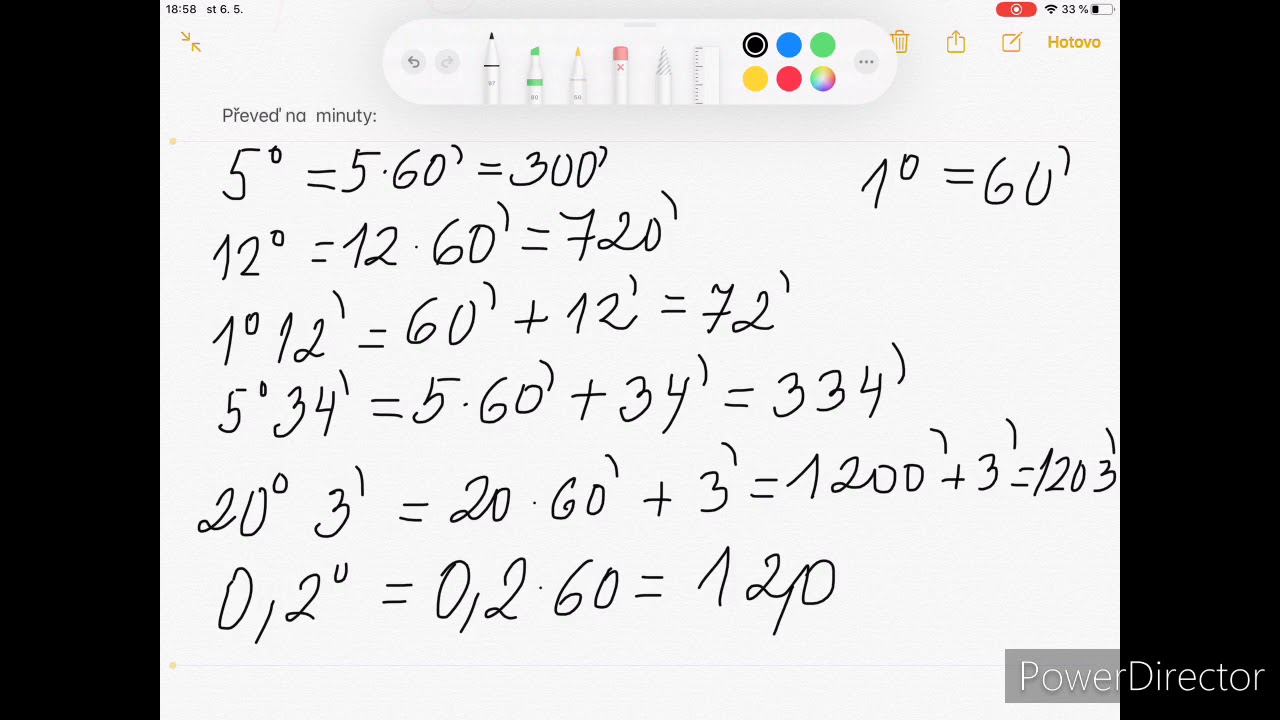 18:58 st 6. 5. 33 %
Hotovo
97 80 50
Převeď na minuty:
5° = 5·60' = 300'
1° = 60'
12° = 12·60' = 720'
1° 12' = 60' + 12' = 72'
5° 34' = 5·60' + 34' = 334'
20° 3' = 20·60' + 3' = 1200' + 3' = 1203'
0,2° = 0,2·60 = 12,0
PowerDirector